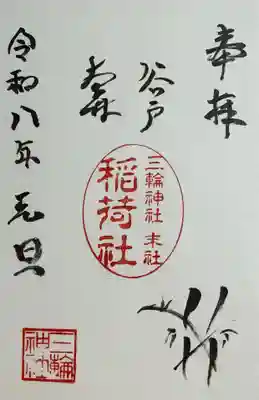 奉拝
谷戸
三輪神社 末社
稲荷社
令和八年元旦
三輪神社